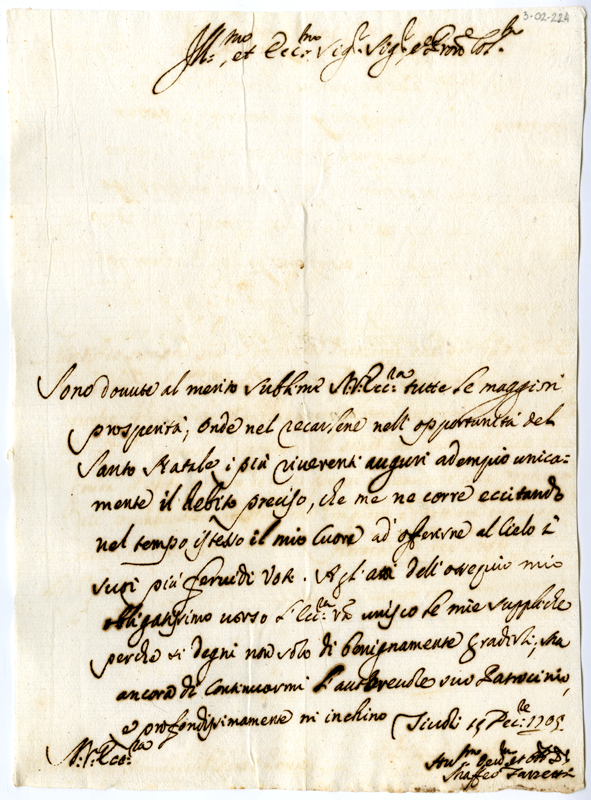 3-02-224
Ill:mo, et Ecc:mo Sig:r Sig:r, e Pron Col:mo
Sono douute al merito sublime di V.Ecc:za tutte le maggiori
prosperità; onde nel recarlene nell'opportunità del
Santo Natale i più riuerenti auguri adempio unica=
mente il debito preciso, che me ne corre eccitando
nel tempo istesso il mio Cuore ad' offerirne al Cielo i
suoi più feruidi Voti. Agl'atti dell'ossequio mio
obligatissimo uerso l'Ecc:za Vra unisco le mie suppliche
perche si degni non solo di benignamente gradirli, ma
ancora di continuarmi l'autoreuole suo Patrocinio,
e profondissimamente m'inchino Tiuoli 15 Dec:re 1705
V.Ecc:za
Hu:mo Deu:mo et Obl:mo